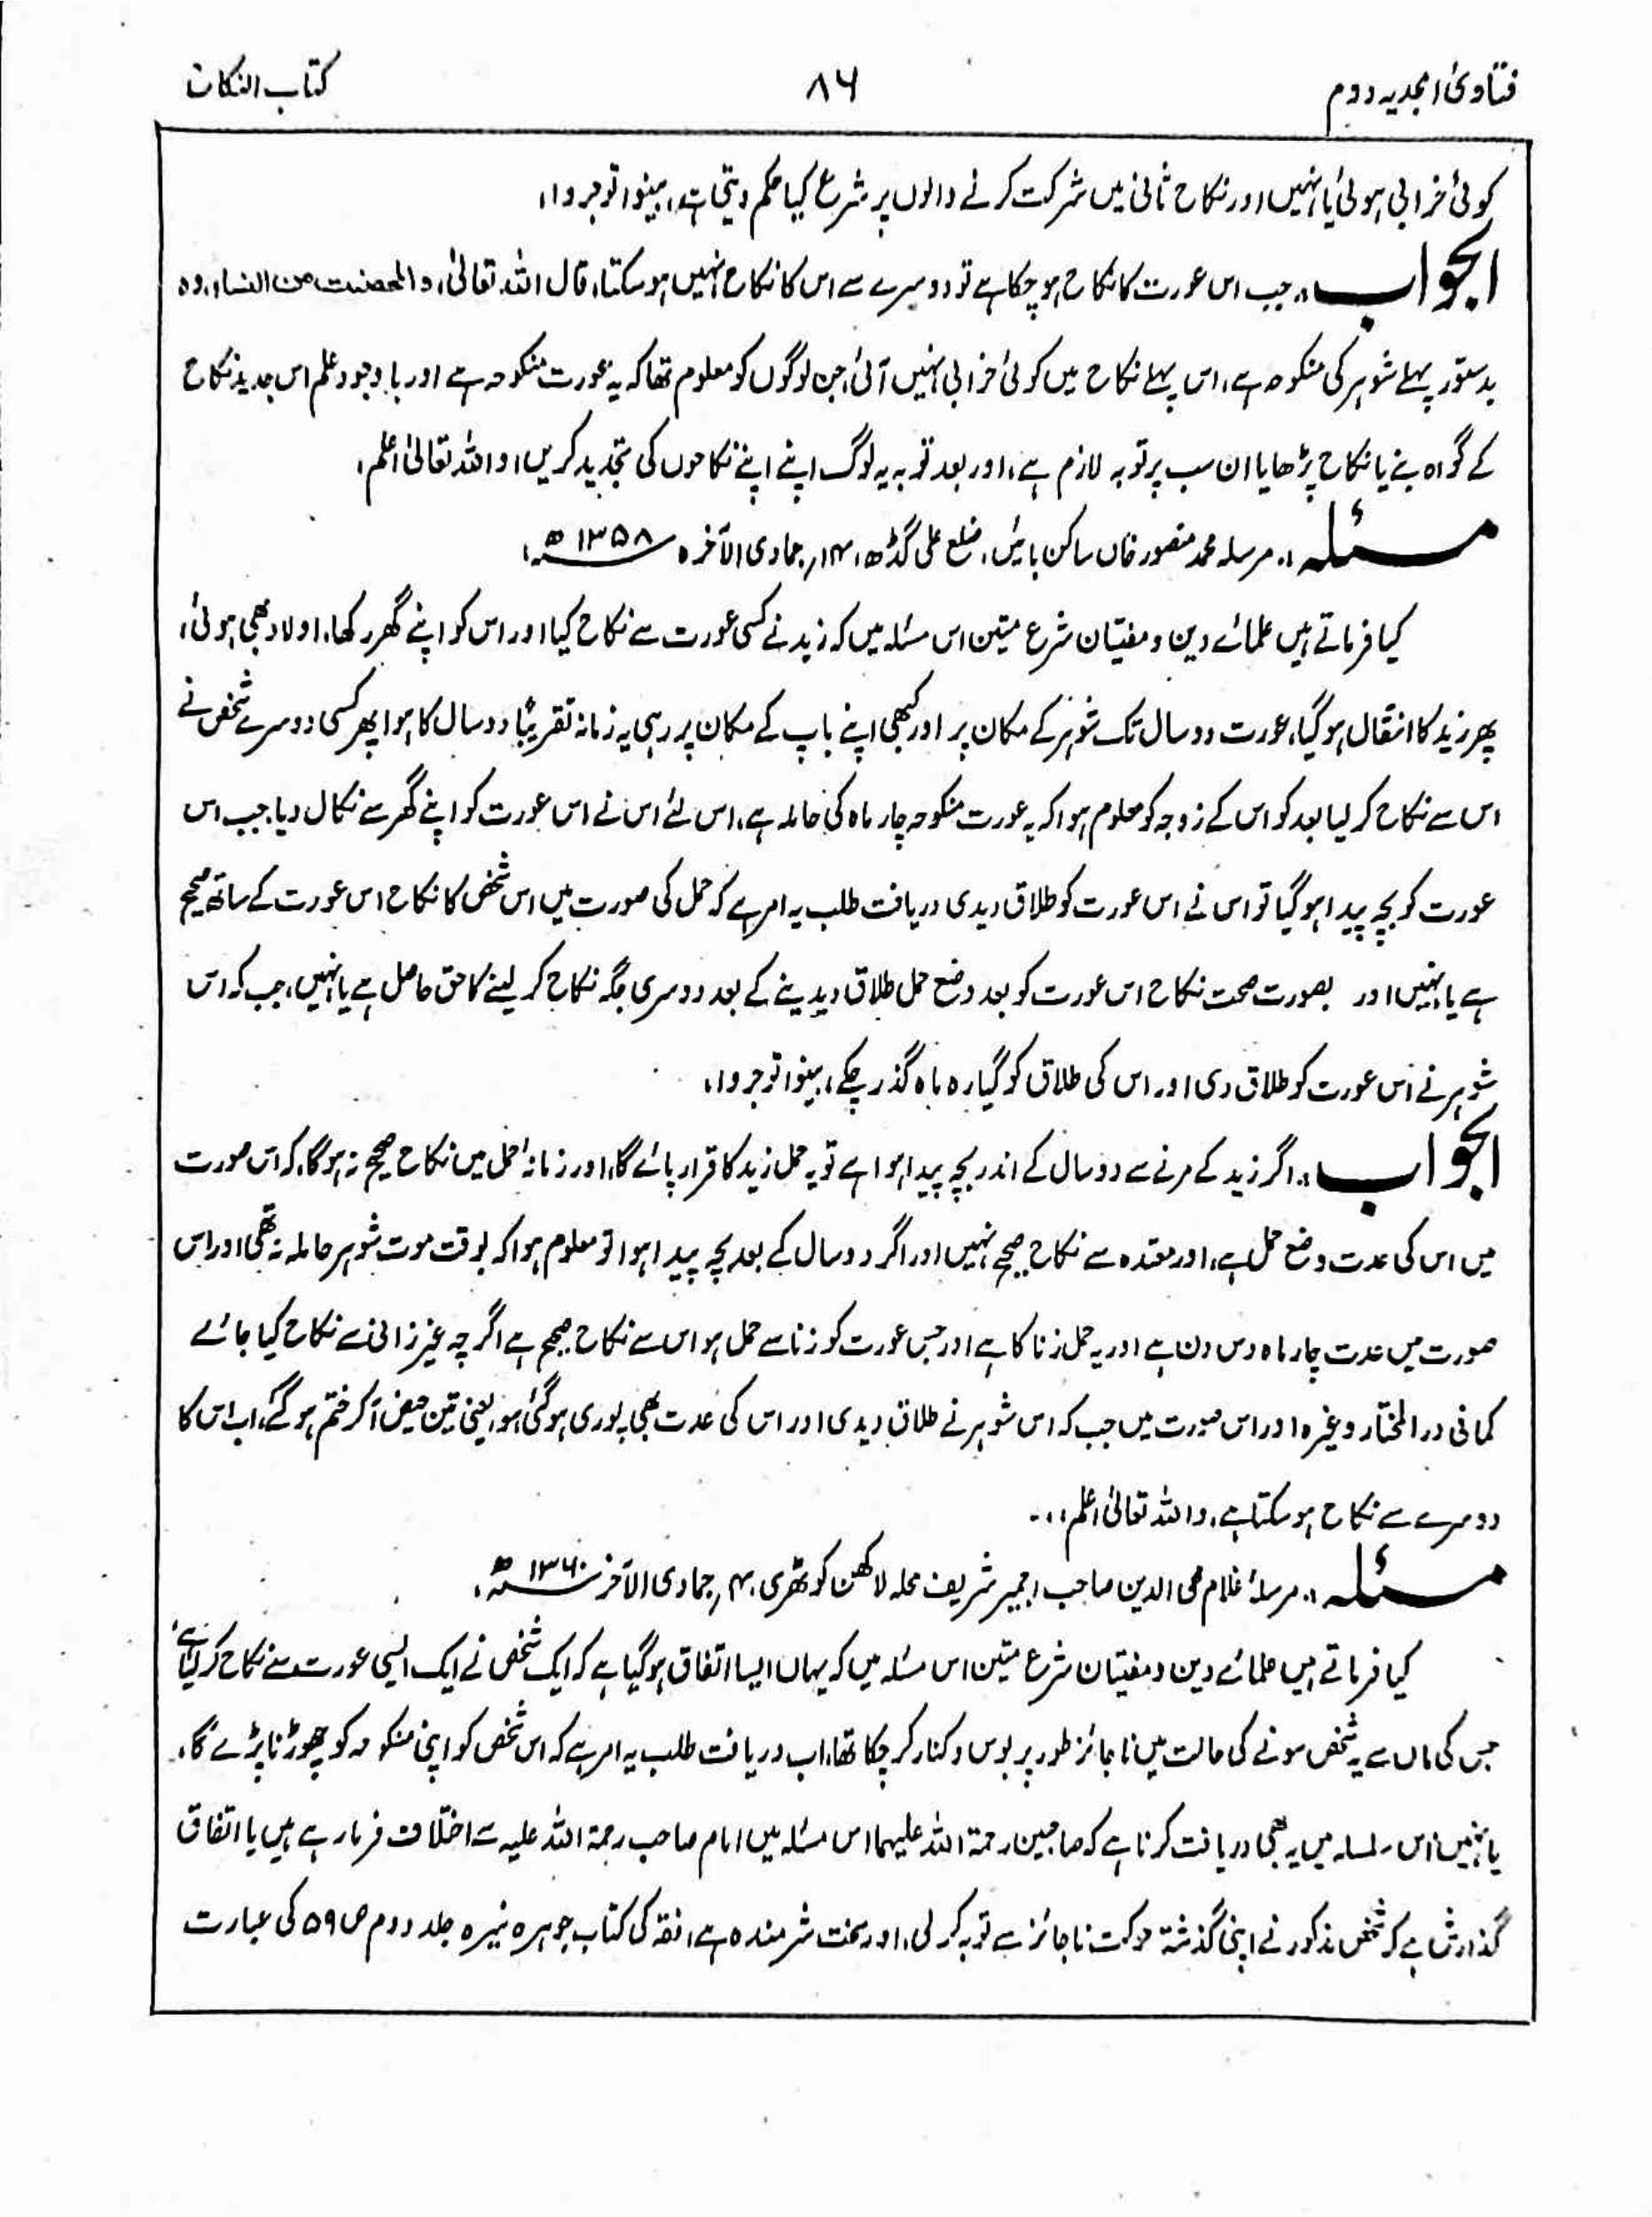 فتاویٰ امجدیہ دوم
۸۶
کتاب النکاح
کوئی خرابی ہوئی یا نہیں اور نکاح ثانی میں شرکت کرنے والوں پر شرع کیا حکم دیتی ہے، بینوا توجروا،
الجواب :۔ جب اس عورت کا نکاح ہو چکا ہے تو دوسرے سے اس کا نکاح نہیں ہو سکتا، قال اللہ تعالیٰ، والمحصنٰت من النساء، وہ
بدستور پہلے شوہر کی منکوحہ ہے، اس پہلے نکاح میں کوئی خرابی نہیں آئی، جن لوگوں کو معلوم تھا کہ یہ عورت منکوحہ ہے اور باوجود علم اس جدید نکاح
کے گواہ بنے یا نکاح پڑھایا ان سب پر توبہ لازم ہے، اور بعد توبہ یہ لوگ اپنے اپنے نکاحوں کی تجدید کریں، واللہ تعالیٰ اعلم،
مسئلہ :۔ مرسلہ محمد منصور خاں ساکن بائیں، ضلع علی گڑھ، ۱۴؍ جمادی الآخرہ ۱۳۵۸ھ،
کیا فرماتے ہیں علمائے دین و مفتیان شرع متین اس مسئلہ میں کہ زید نے کسی عورت سے نکاح کیا اور اس کو اپنے گھر رکھا، اولاد بھی ہوئی،
پھر زید کا انتقال ہو گیا، عورت دو سال تک شوہر کے مکان پر اور کبھی اپنے باپ کے مکان پر رہی یہ زمانہ تقریباً دو سال کا ہوا پھر کسی دوسرے شخص نے
اس سے نکاح کر لیا بعد کو اس کے زوج کو معلوم ہوا کہ یہ عورت منکوحہ چار ماہ کی حاملہ ہے، اس لئے اس نے اس عورت کو اپنے گھر سے نکال دیا، جب اس
عورت کو بچہ پیدا ہو گیا تو اس نے اس عورت کو طلاق دیدی دریافت طلب یہ امر ہے کہ حمل کی صورت میں اس شخص کا نکاح اس عورت کے ساتھ صحیح
ہے یا نہیں اور بصورت صحت نکاح اس عورت کو بعد وضع حمل طلاق دیدینے کے بعد دوسری جگہ نکاح کر لینے کا حق حاصل ہے یا نہیں، جب کہ اس
شوہر نے اس عورت کو طلاق دی اور اس کی طلاق کو گیارہ ماہ گذر چکے، بینوا توجروا،
الجواب :۔ اگر زید کے مرنے سے دو سال کے اندر بچہ پیدا ہوا ہے تو یہ حمل زید کا قرار پائے گا، اور زمانۂ حمل میں نکاح صحیح نہ ہوگا، کہ اس صورت
میں اس کی عدت وضع حمل ہے، اور معتدہ سے نکاح صحیح نہیں اور اگر دو سال کے بعد بچہ پیدا ہوا تو معلوم ہوا کہ بوقت موت شوہر حاملہ نہ تھی اور اس
صورت میں عدت چار ماہ دس دن ہے اور یہ حمل زنا کا ہے اور جس عورت کو زنا سے حمل ہو اس سے نکاح صحیح ہے اگرچہ غیر زانی سے نکاح کیا جائے
کما فی در المختار وغیرہ اور اس صورت میں جب کہ اس شوہر نے طلاق دیدی اور اس کی عدت بھی پوری ہو گئی ہو، یعنی تین حیض آکر ختم ہو گئے، اب اس کا
دوسرے سے نکاح ہو سکتا ہے، واللہ تعالیٰ اعلم،،۔
مسئلہ :۔ مرسلۂ غلام محی الدین صاحب اجمیر شریف محلہ لاکھن کوٹھری، ۴؍ جمادی الآخر ۱۳۶۰ھ،
کیا فرماتے ہیں علمائے دین و مفتیان شرع متین اس مسئلہ میں کہ یہاں ایسا اتفاق ہو گیا ہے کہ ایک شخص نے ایک ایسی عورت سے نکاح کر لیا ہے،
جس کی ماں سے یہ شخص سونے کی حالت میں ناجائز طور پر بوس و کنار کر چکا تھا، اب دریافت طلب یہ امر ہے کہ اس شخص کو اپنی منکوحہ کو چھوڑنا پڑے گا،
یا نہیں، اس سلسلہ میں یہ بھی دریافت کرنا ہے کہ صاحبین رحمۃ اللہ علیہما اس مسئلہ میں امام صاحب رحمۃ اللہ علیہ سے اختلاف فرما رہے ہیں یا اتفاق
گذارش ہے کہ شخص مذکور نے اپنی گذشتہ حرکت ناجائز سے توبہ کر لی، اور سخت شرمندہ ہے، فقہ کی کتاب جوہرہ نیرہ جلد دوم ص ۵۹ کی عبارت